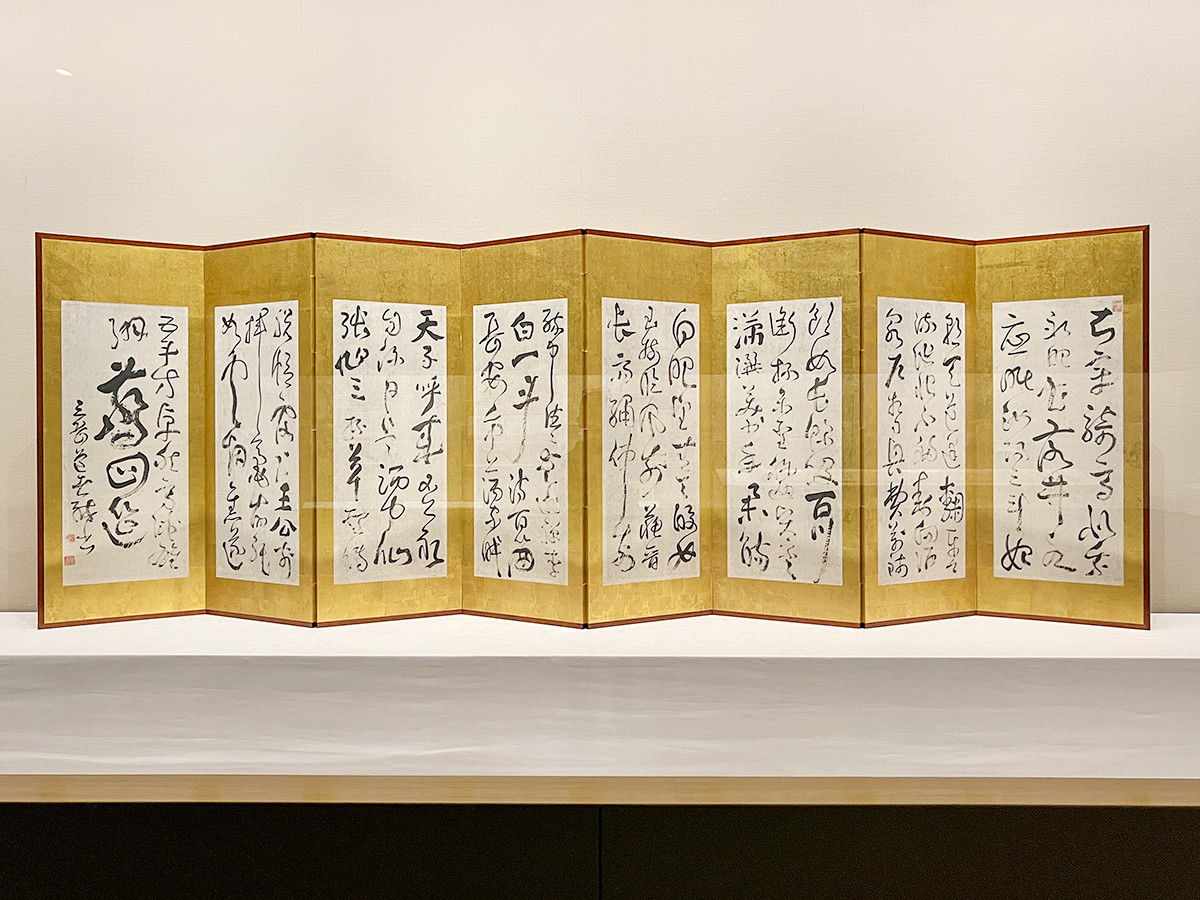 知章騎馬似乘
船眼花落井水
底眠汝陽三斗始
朝天道逢麴車口
流涎恨不移封向酒
泉左相日興費萬錢
飲如長鯨吸百川
銜杯樂聖稱避賢宗之
瀟灑美少年舉觴
白眼望青天皎如
玉樹臨風前蘇晉
長齋繡佛前
醉中往往愛逃禪李
白一斗詩百篇
長安市上酒家眠
天子呼來不上船
自稱臣是酒中仙
張旭三杯草聖傳
脫帽露頂王公前
揮毫落紙
如雲煙焦遂
五斗方卓然高談雄辯
驚四筵